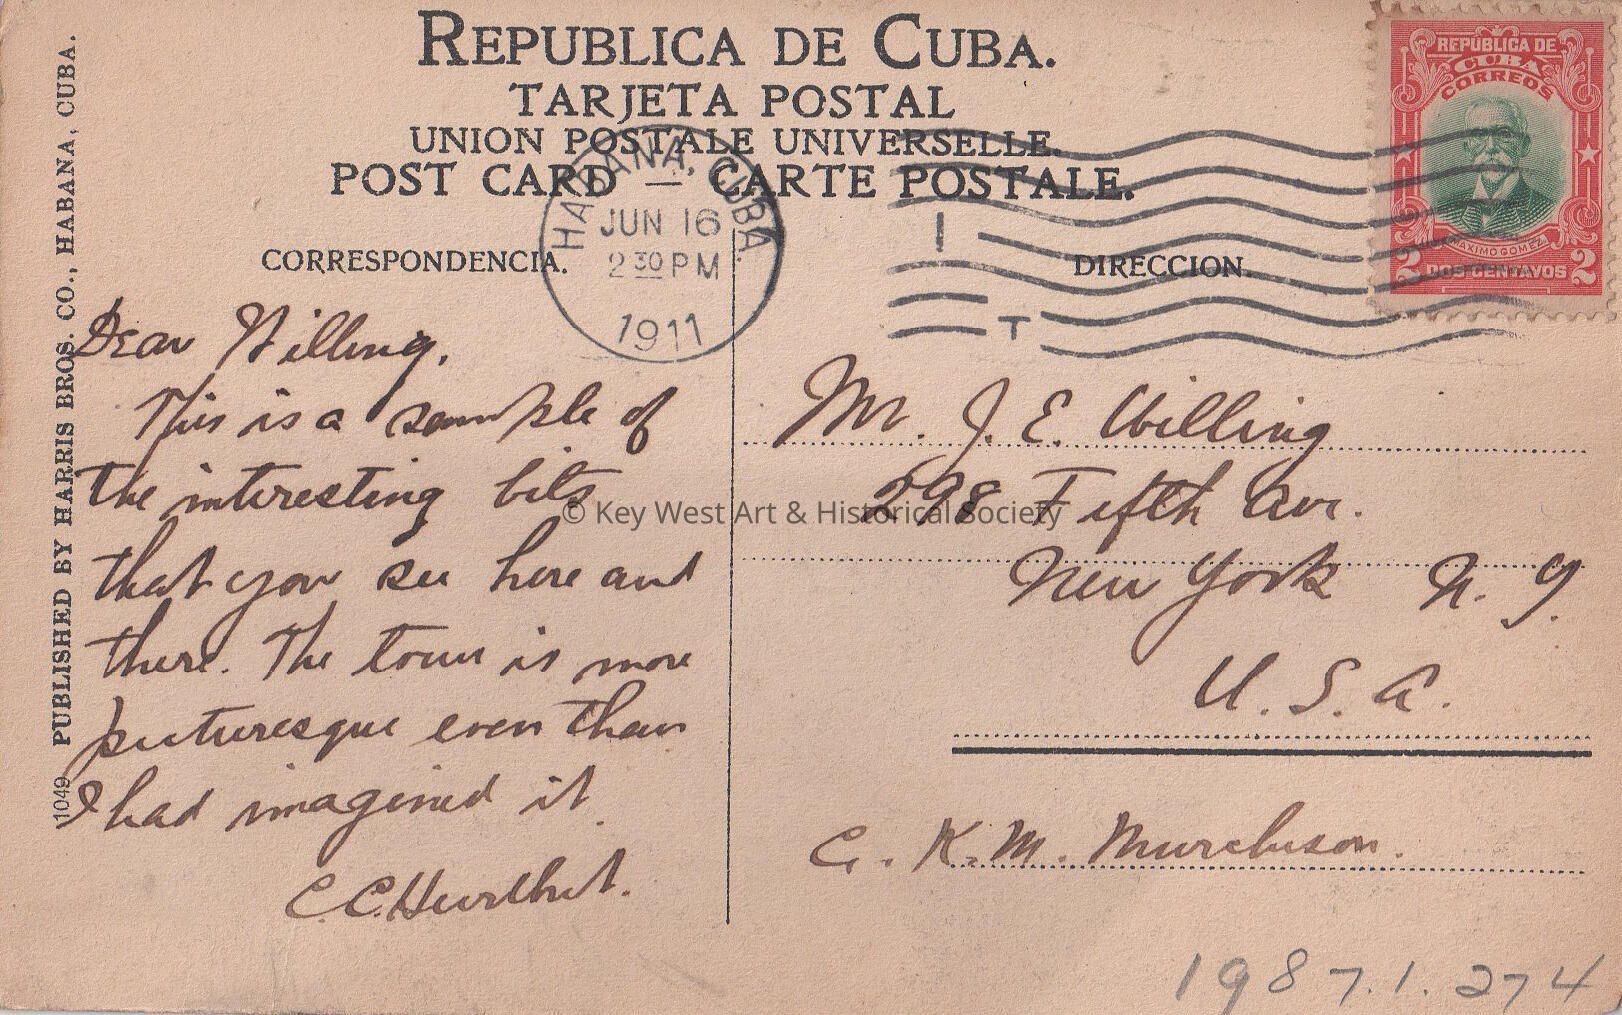 REPUBLICA DE CUBA.
TARJETA POSTAL
UNION POSTALE UNIVERSELLE.
POST CARD — CARTE POSTALE.
CORRESPONDENCIA.
DIRECCION.
1049 PUBLISHED BY HARRIS BROS. CO., HABANA, CUBA.
HABANA, CUBA.
JUN 16
2 30 PM
1911
1
T
REPÚBLICA DE
CUBA
CORREOS
MAXIMO GOMEZ
2 DOS CENTAVOS 2
Dear Willing,
This is a sample of
the interesting bits
that you see here and
there. The town is more
picturesque even than
I had imagined it.
C. C. Hurlbut.
Mr. J. E. Willing
298 Fifth Ave.
New York N. Y.
U. S. A.
C. K. M. Murchison.
© Key West Art & Historical Society
1987.1.274